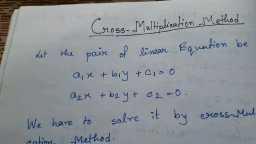 Cross-Multiplication Method
Let the pair of linear Equation be
a₁x + b₁y + c₁ = 0
a₂x + b₂y + c₂ = 0.
We have to solve it by cross-Mul
cation Method.